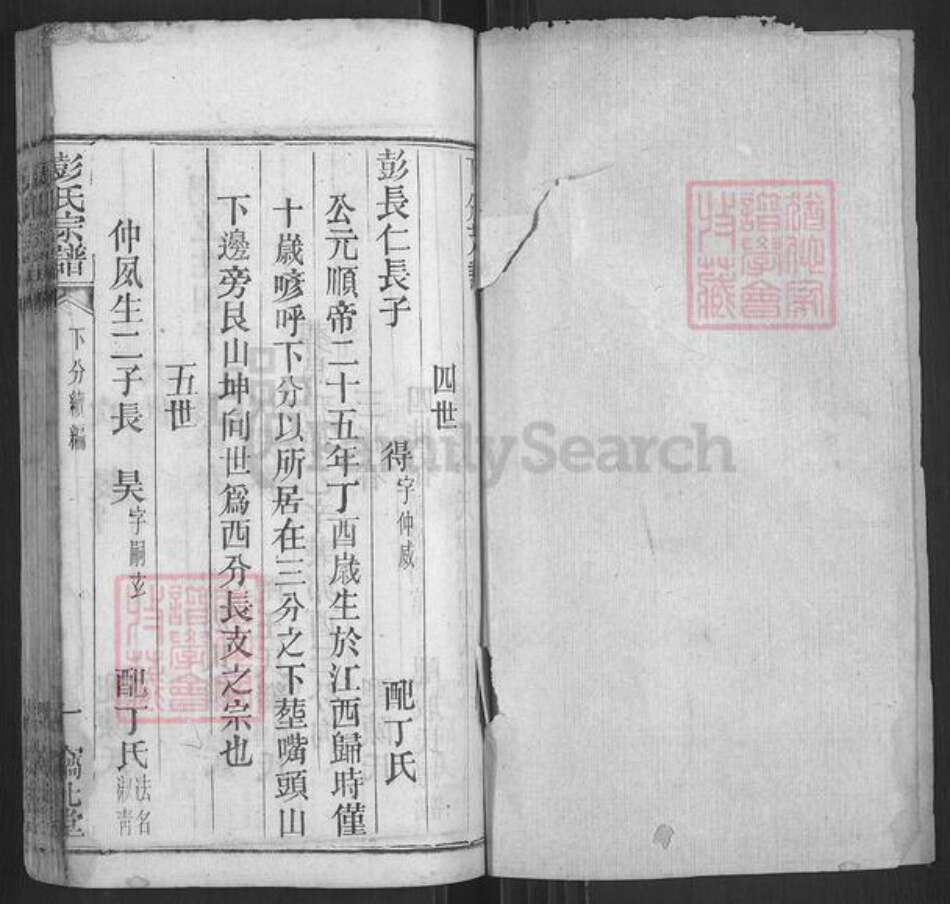 四世
彭長仁長子 得字仲威 配丁氏
公元順帝二十五年丁酉歲生於江西歸時僅
十歲嗁呼下分以所居在三分之下塟嘴頭山
下邊旁艮山坤向世爲西分長支之宗也
五世
仲威生二子長 昊字嗣玄 配丁氏法名淑青
彭氏宗譜 下分續編 一
譜學會
特藏
FamilySearch